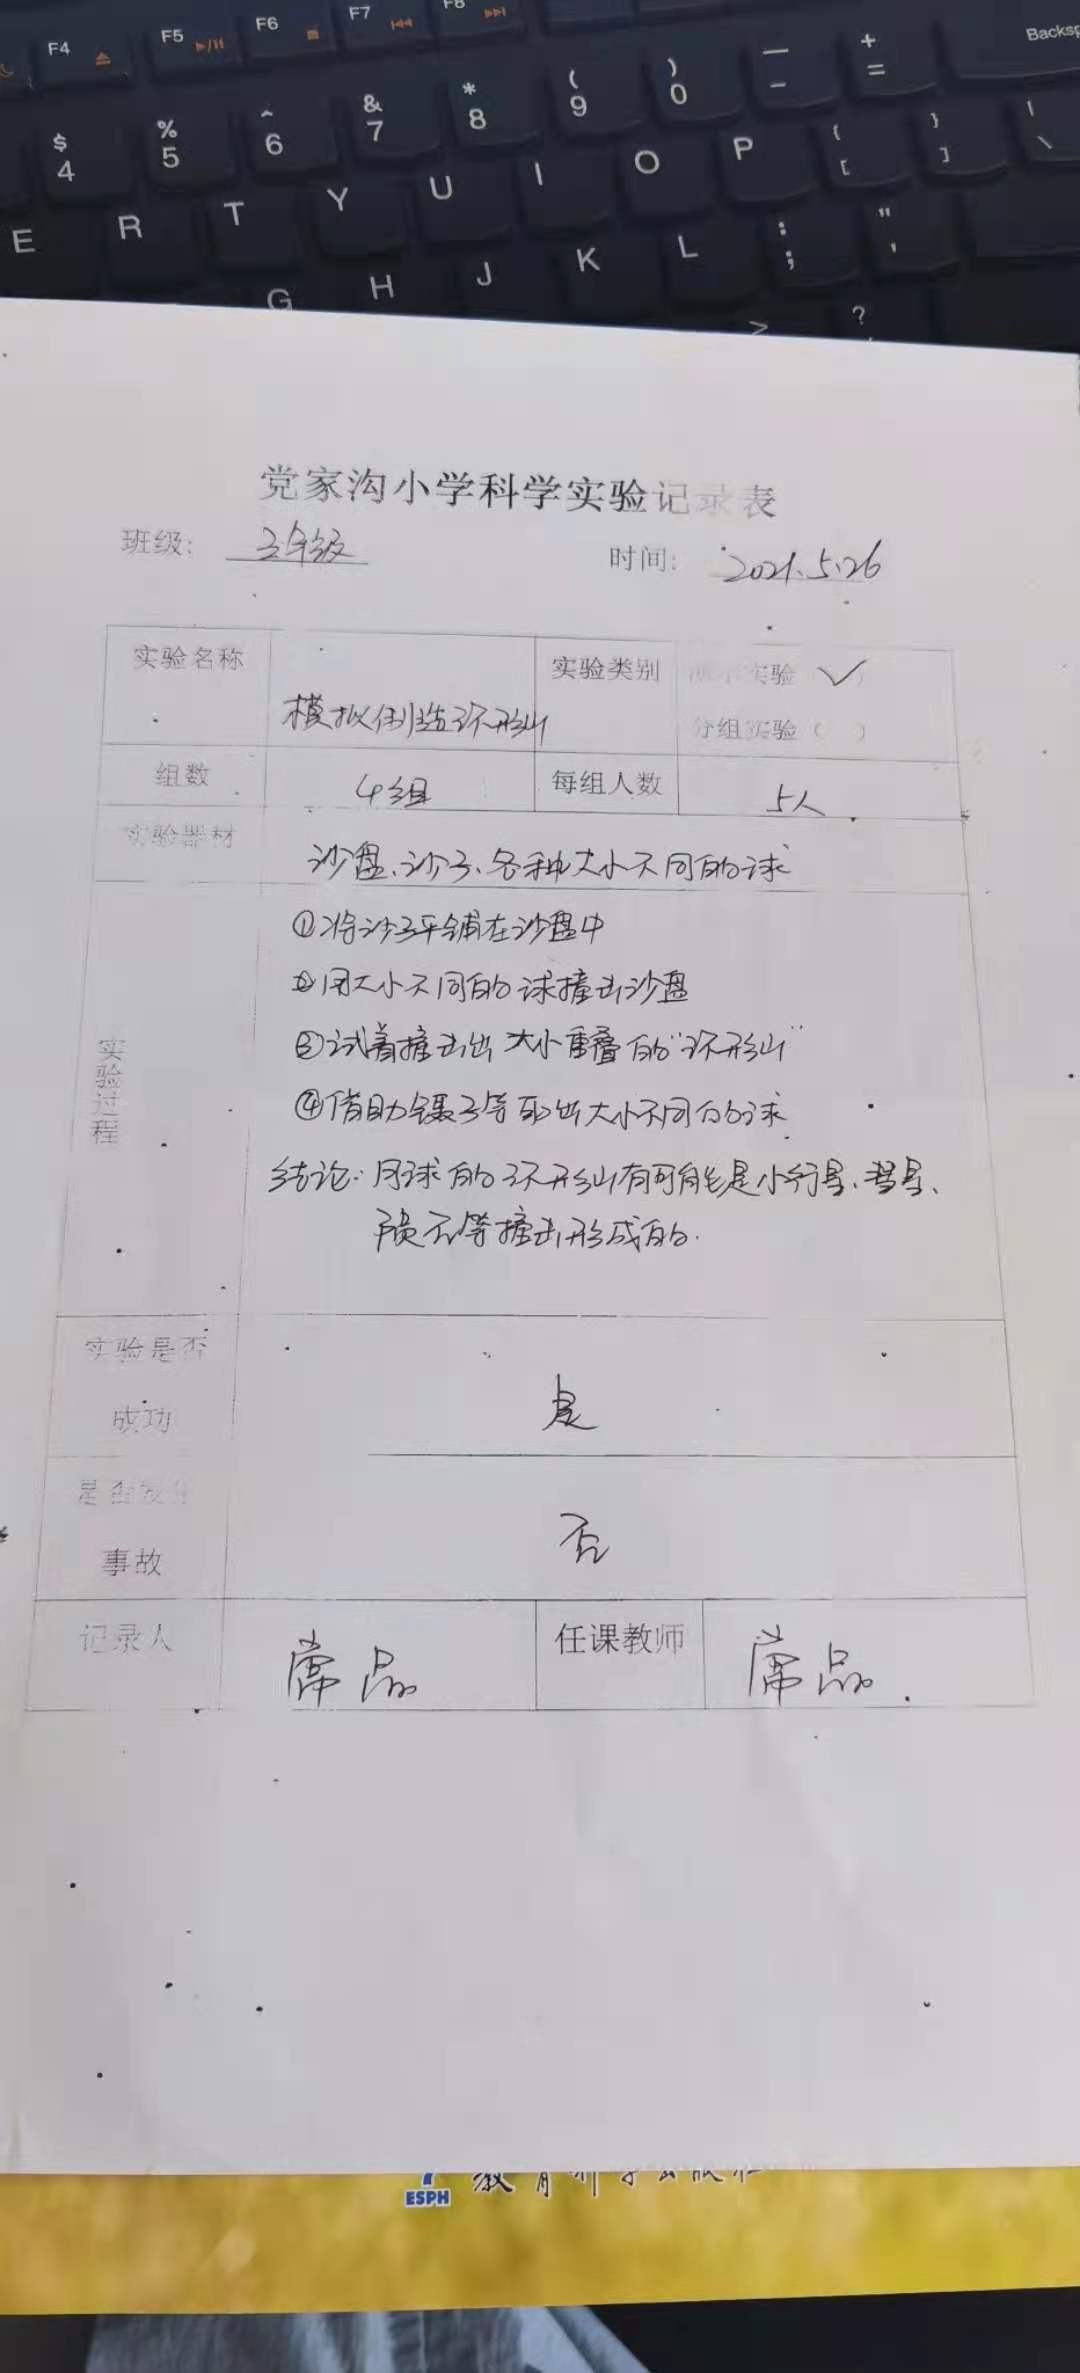 F4 F5 F6 F7 F8
$ 4 % 5 ^ 6 & 7 * 8 ( 9 ) 0 — - + = Backsp
E R T Y U I O P { [ } ] | \
G H J K L : ; " '
> ?
党家沟小学科学实验记录表
班级: 三年级 时间: 2021.5.26
实验名称 模拟制造环形山 实验类别 演示实验（✓）
分组实验（ ）
组数 4组 每组人数 5人
实验器材 沙盘、沙子、各种大小不同的球
实验过程
①将沙子平铺在沙盘中
②用大小不同的球撞击沙盘
③试着撞击出大小重叠的“环形山”
④借助镊子等取出大小不同的球
结论：月球的环形山有可能是小行星、彗星、
陨石等撞击形成的.
实验是否
成功 是
是否发生
事故 否
记录人 常品 任课教师 常品
ESPH 教育科学出版社